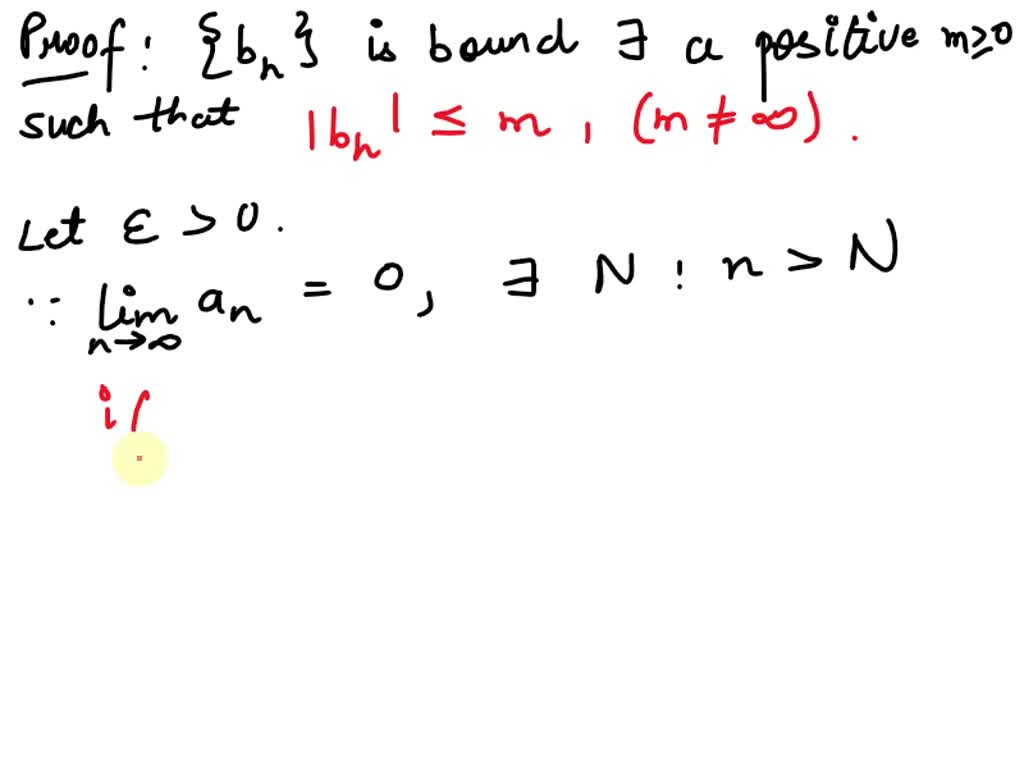 Proof : {bₙ} is bound ∃ a positive m≥0
such that |bₙ| ≤ m , (m ≠ ∞) .
Let ε > 0 .
∵ lim aₙ = 0 , ∃ N : n > N
n→∞